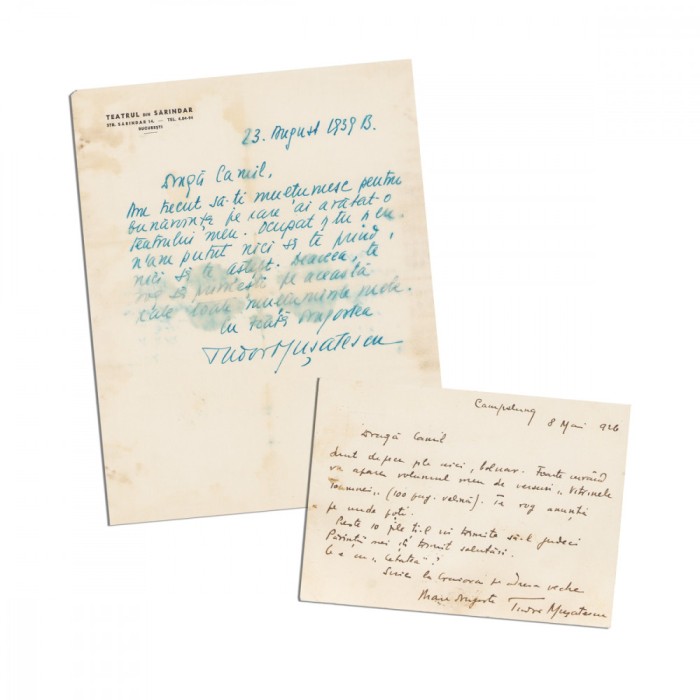 TEATRUL DIN SARINDAR
STR. SARINDAR 14. — TEL. 4.04-94
BUCUREȘTI
23. August 1939 B.
Dragă Camil,
Am trecut să-ți mulțumesc pentru
bunăvoința pe care ai arătat-o
teatrului meu. Ocupat și tu și eu
n'am putut nici să te prind,
nici să te aștept. Deaceea, te
rog să primești pe această
cale toate mulțumirile mele.
Cu toată dragostea
Tudor Mușatescu
Campulung
8 Mai 926
Dragă Camil
Sunt de pe aici, bolnav. Foarte curând
va apare volumul meu de versuri „Vitrinele
Toamnei„ (100 pag. velină). Te rog anunță
pe unde poți.
Peste 10 zile ți-l voi trimite să-l judeci
Părinții mei îți trimit salutări.
Ce e cu „Cetatea"?
Scrie la adresa veche
Mare dragoste Tudor Mușatescu